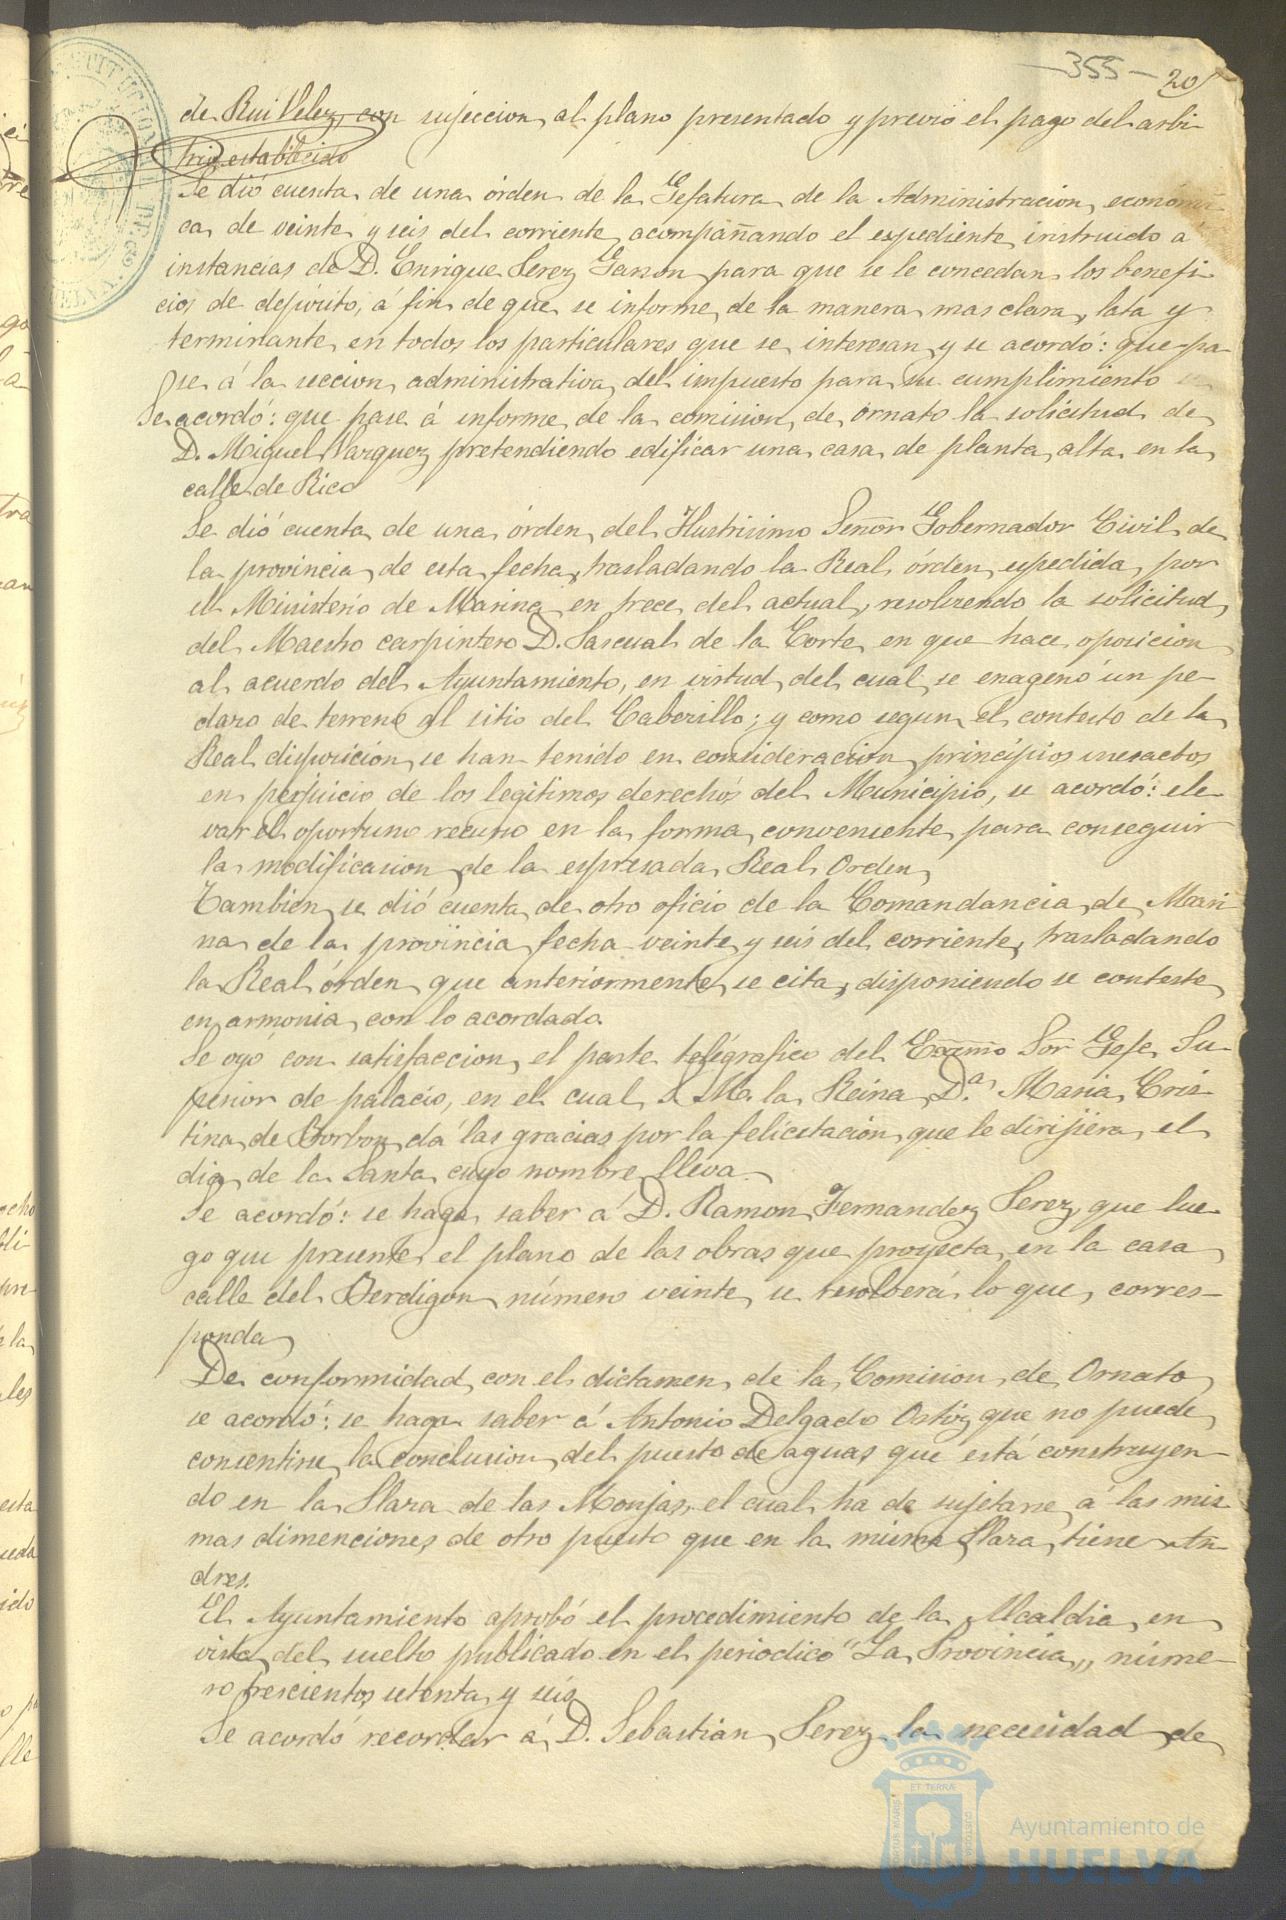 -355- 20
de Rui Velez, con sujeccion al plano presentado y previo el pago del arbi
trio establecido
Se dió cuenta de una órden de la Gefatura de la Administracion económi
ca de veinte y seis del corriente acompañando el espediente instruido a
instancias de D. Enrique Perez Garzon para que se le concedan los benefi
cios de depósito, a fin de que se informe de la manera mas clara, lata y
terminante en todos los particulares que se interesan y se acordó: que pa
se á la seccion administrativa del impuesto para su cumplimiento
Se acordó: que pase á informe de la comision de ornato la solicitud de
D. Miguel Vazquez pretendiendo edificar una casa de planta alta en la
calle de Rico
Se dió cuenta de una órden del Ilustrisimo Señor Gobernador Civil de
la provincia de esta fecha, trasladando la Real órden espedida por
el Ministerio de Marina en trece del actual, resolviendo la solicitud
del Maestro carpintero D. Pascual de la Corte en que hace oposicion
al acuerdo del Ayuntamiento, en virtud del cual se enagenó un pe-
dazo de terreno al sitio del Cabezillo; y como segun el contesto de la
Real disposicion se han tenido en consideracion principios inesactos
en perjuicio de los legitimos derechos del Municipio, se acordó: ele
var el oportuno recurso en la forma conveniente para conseguir
la modificasion de la espresada Real Orden
Tambien se dió cuenta de otro oficio de la Comandancia de Mari
na de la provincia fecha veinte y seis del corriente, trasladando
la Real órden que anteriormente se cita, disponiendo se conteste
en armonia con lo acordado.
Se oyó con satisfaccion el parte telégrafico del Excmo Sor Gefe Su
perior de palacio, en el cual S. M. la Reina D.ª Maria Cris-
tina de Borbon dá las gracias por la felicitacion que le dirijiera el
dia de la Santa cuyo nombre lleva.
Se acordó: se haga saber á D. Ramon Fernandez Perez que lue-
go que presente el plano de las obras que proyecta en la casa
calle del Berdigon número veinte se resolverá lo que corres-
ponda
De conformidad con el dictamen de la Comision de Ornato
se acordó: se haga saber á Antonio Delgado Ortiz que no puede
consentirse la conclusion del puesto de aguas que está construyen-
do en la Plaza de las Monjas, el cual ha de sujetarse á las mis
mas dimenciones de otro puesto que en la misma Plaza tiene An
dres.
El Ayuntamiento aprobó el procedimiento de la Alcaldia en
vista del suelto publicado en el periodico "La Provincia" núme-
ro trescientos setenta y seis
Se acordó recordar á D. Sebastian Perez la necesidad de
ET TERRÆ
Ayuntamiento de
HUELVA